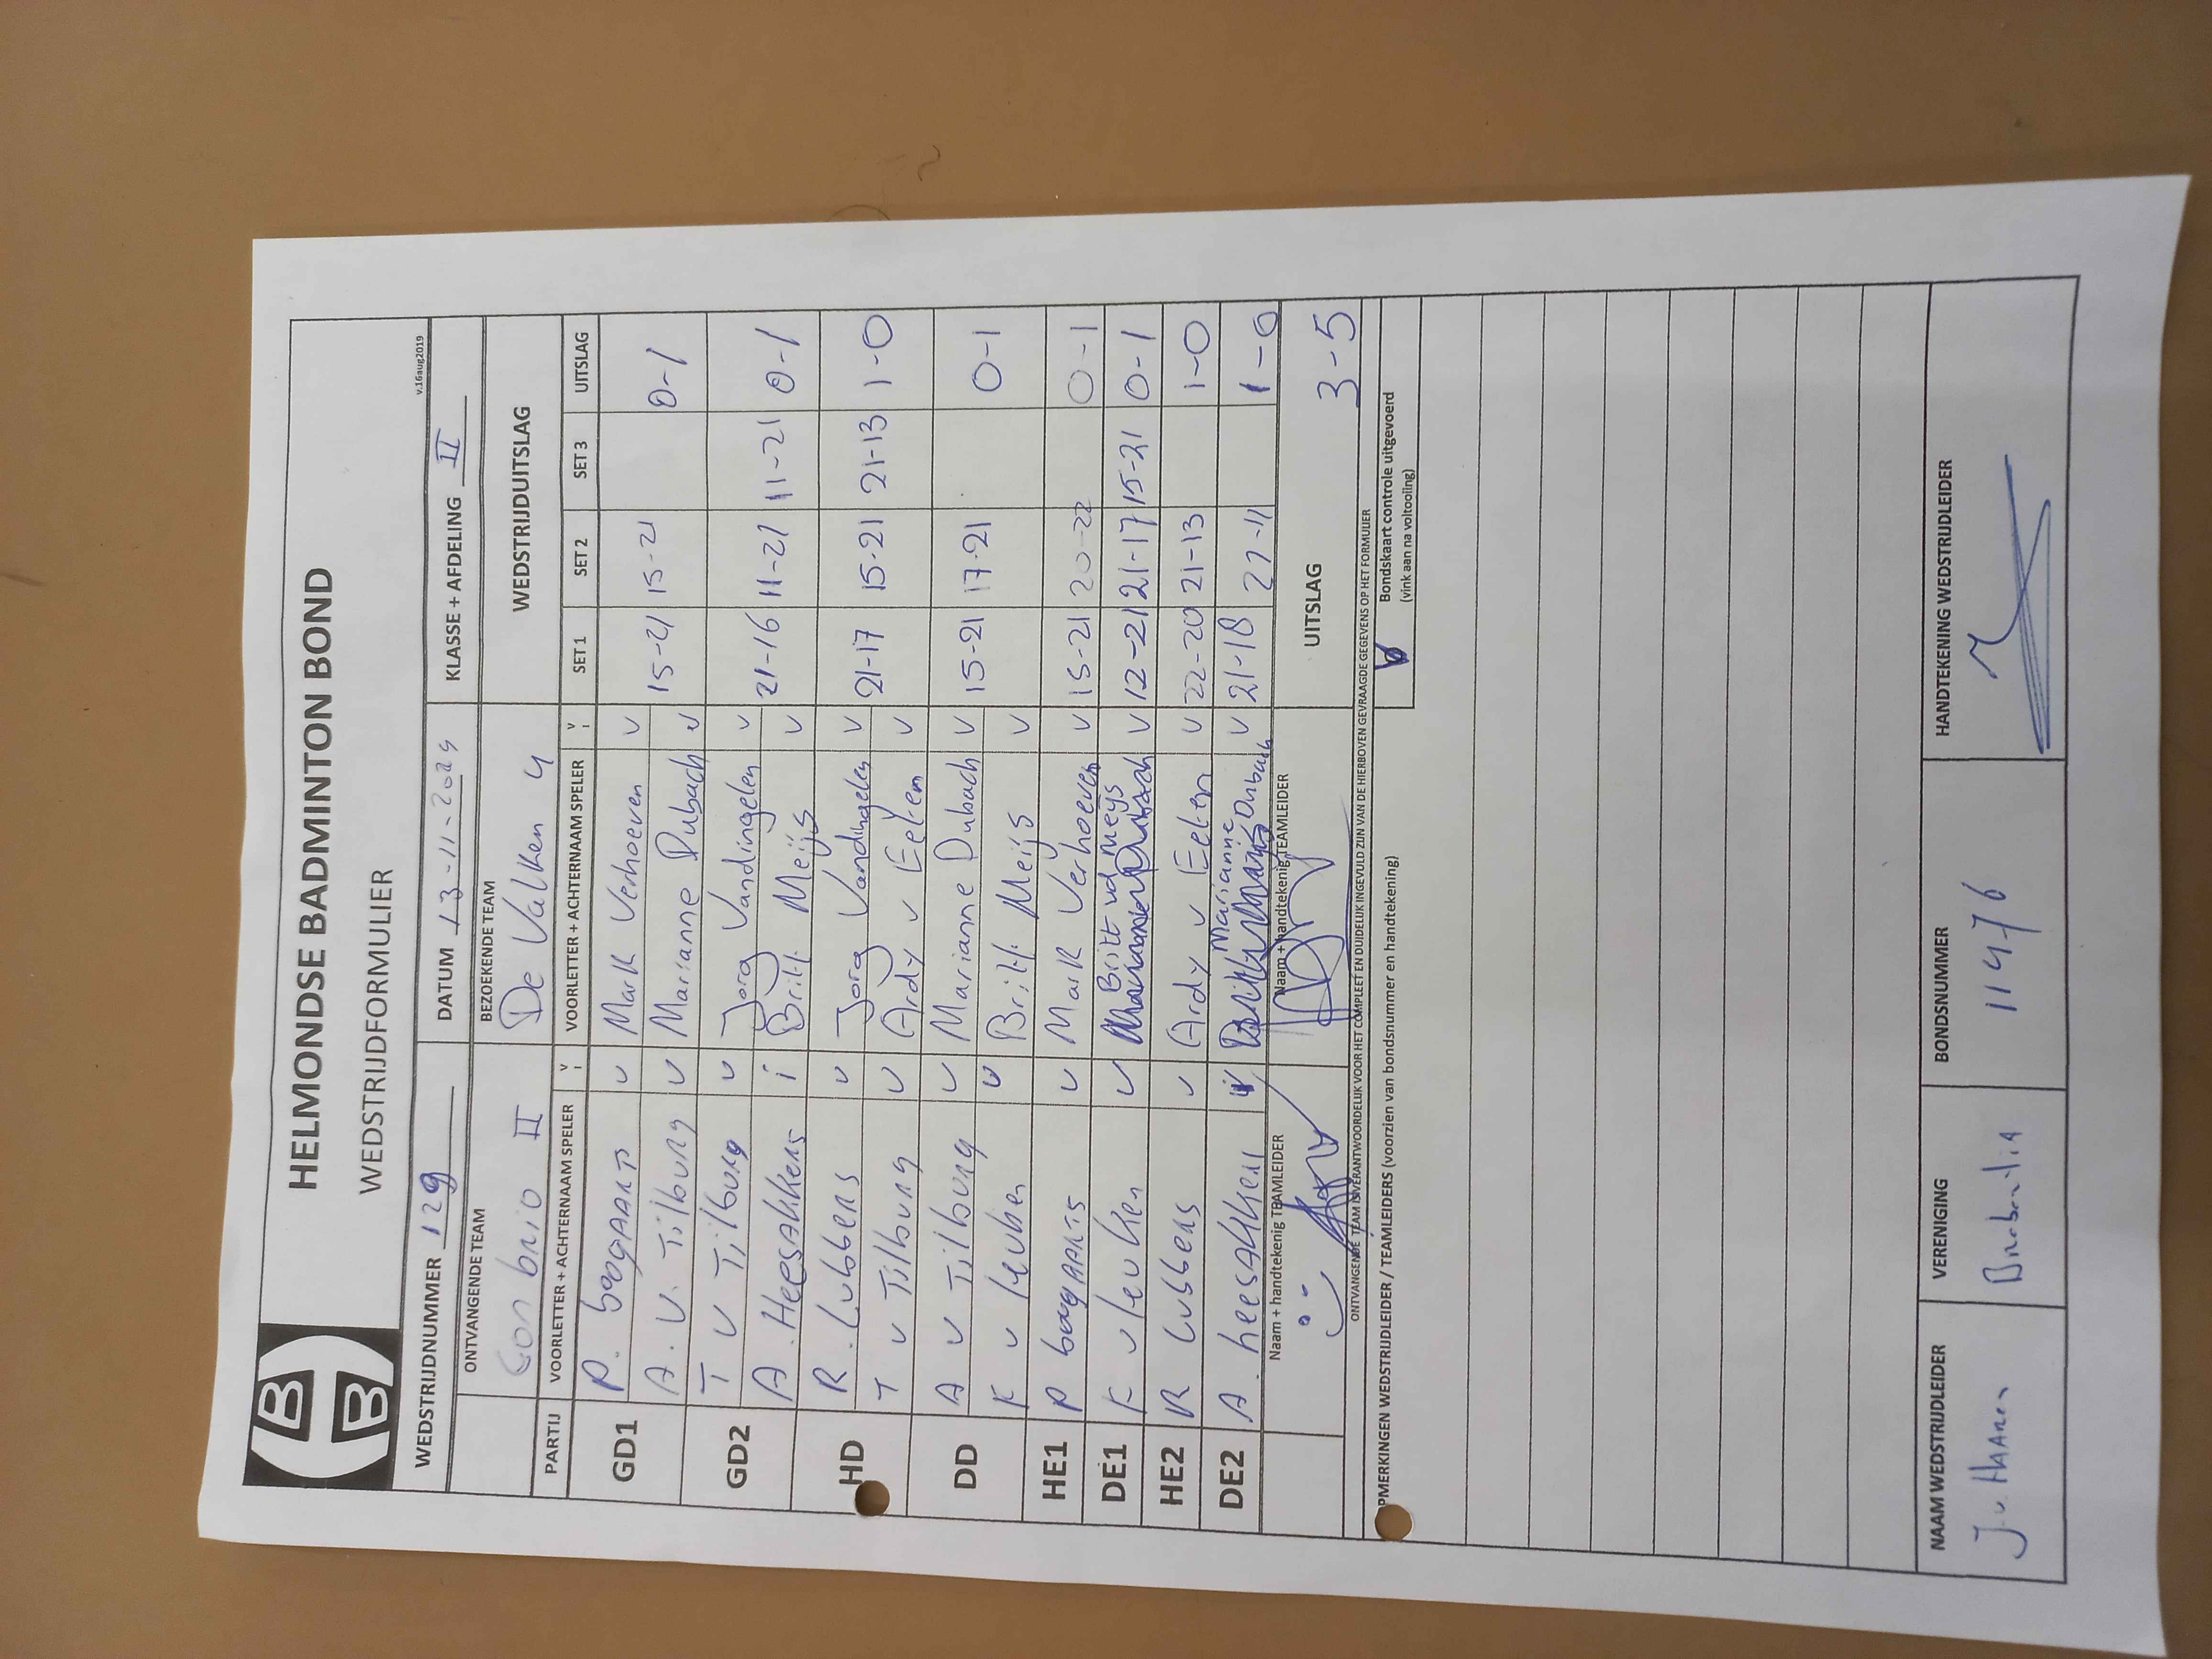 HB
HELMONDSE BADMINTON BOND
WEDSTRIJDFORMULIER
v.16aug2019
WEDSTRIJDNUMMER 129 DATUM 13-11-2024 KLASSE + AFDELING II
ONTVANGENDE TEAM BEZOEKENDE TEAM WEDSTRIJDUITSLAG
Con brio II De Valken 4
PARTIJ VOORLETTER + ACHTERNAAM SPELER V I VOORLETTER + ACHTERNAAM SPELER V I SET 1 SET 2 SET 3 UITSLAG
GD1 P. boogAARTS v Mark Verhoeven v
A. v. Tilburg v Marianne Dubach v 15-21 15-21 0-1
GD2 T v Tilburg v Jorg Vandingelen v
A. Heesakkers i Britt Meijs v 21-16 11-21 11-21 0-1
HD R. Lubbers v Jorg Vandingelen v
T v Tilburg v Ardy v Eelen v 21-17 15-21 21-13 1-0
DD A v Tilburg v Marianne Dubach v
K v leuken v Britt Meijs v 15-21 17-21 0-1
HE1 P boogAARTS v Mark Verhoeven v 15-21 20-22 0-1
DE1 K v leuken v Britt vd Meijs v 12-21 21-17 15-21 0-1
HE2 R Lubbers v Ardy v Eelen v 22-20 21-13 1-0
DE2 A. heesakkers Marianne Dubach v 21-18 21-11 1-0
Naam + handtekenig TEAMLEIDER Naam + handtekenig TEAMLEIDER UITSLAG 3-5
ONTVANGENDE TEAM IS VERANTWOORDELIJK VOOR HET COMPLEET EN DUIDELIJK INGEVULD ZIJN VAN DE HIERBOVEN GEVRAAGDE GEGEVENS OP HET FORMULIER
PMERKINGEN WEDSTRIJDLEIDER / TEAMLEIDERS (voorzien van bondsnummer en handtekening) Bondskaart controle uitgevoerd
(vink aan na voltooiing)
NAAM WEDSTRIJDLEIDER VERENIGING BONDSNUMMER HANDTEKENING WEDSTRIJDLEIDER
J. v. Haaren Brabantia 11476